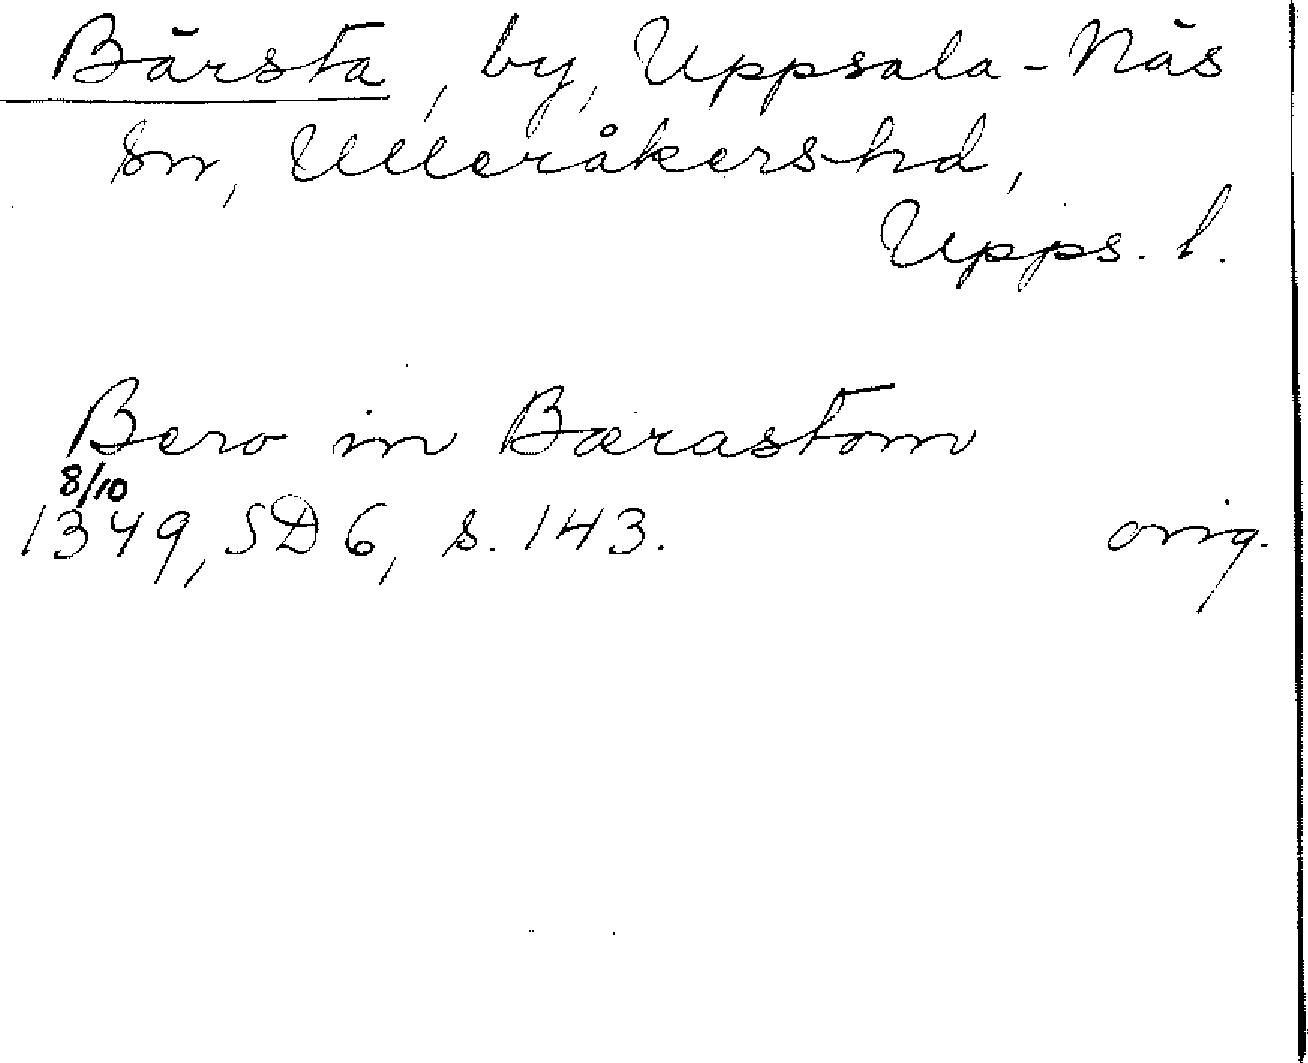 Bärsta, by, Uppsala-Näs
sn, Ulleråkers hd,
Upps. l.
Bero in Bærastom
8/10
1349, SD 6, s. 143. orig.